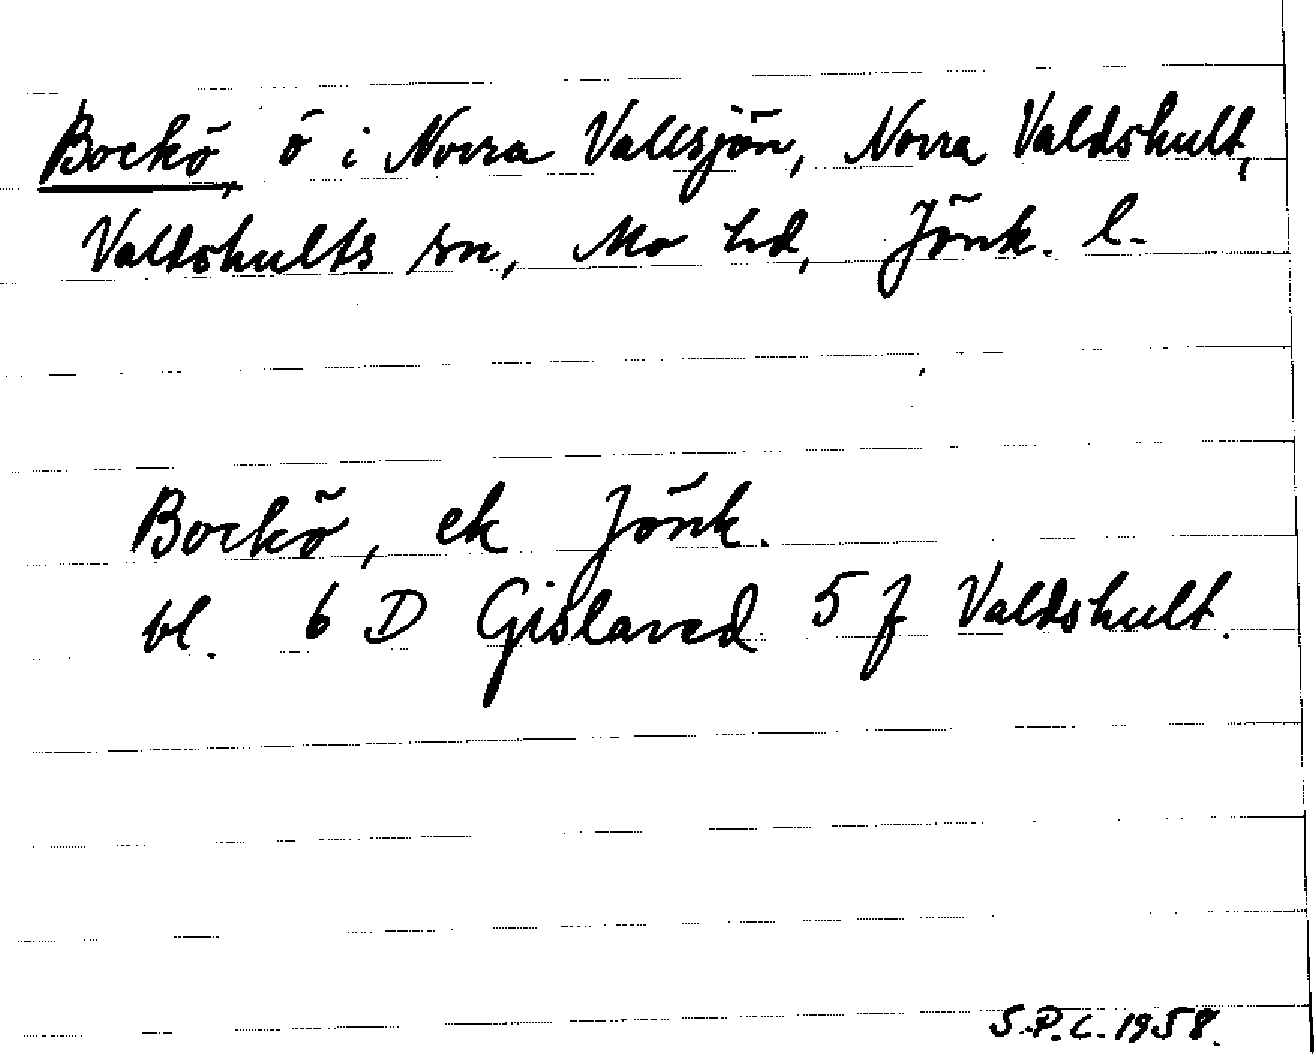 Bockö, ö i Norra Vallsjön, Norra Valdshult,
Valdshults sn, Mo hd, Jönk. l.
Bockö, ek Jönk.
bl. 6 D Gislaved 5 f Valdshult.
S.P.C. 1958.